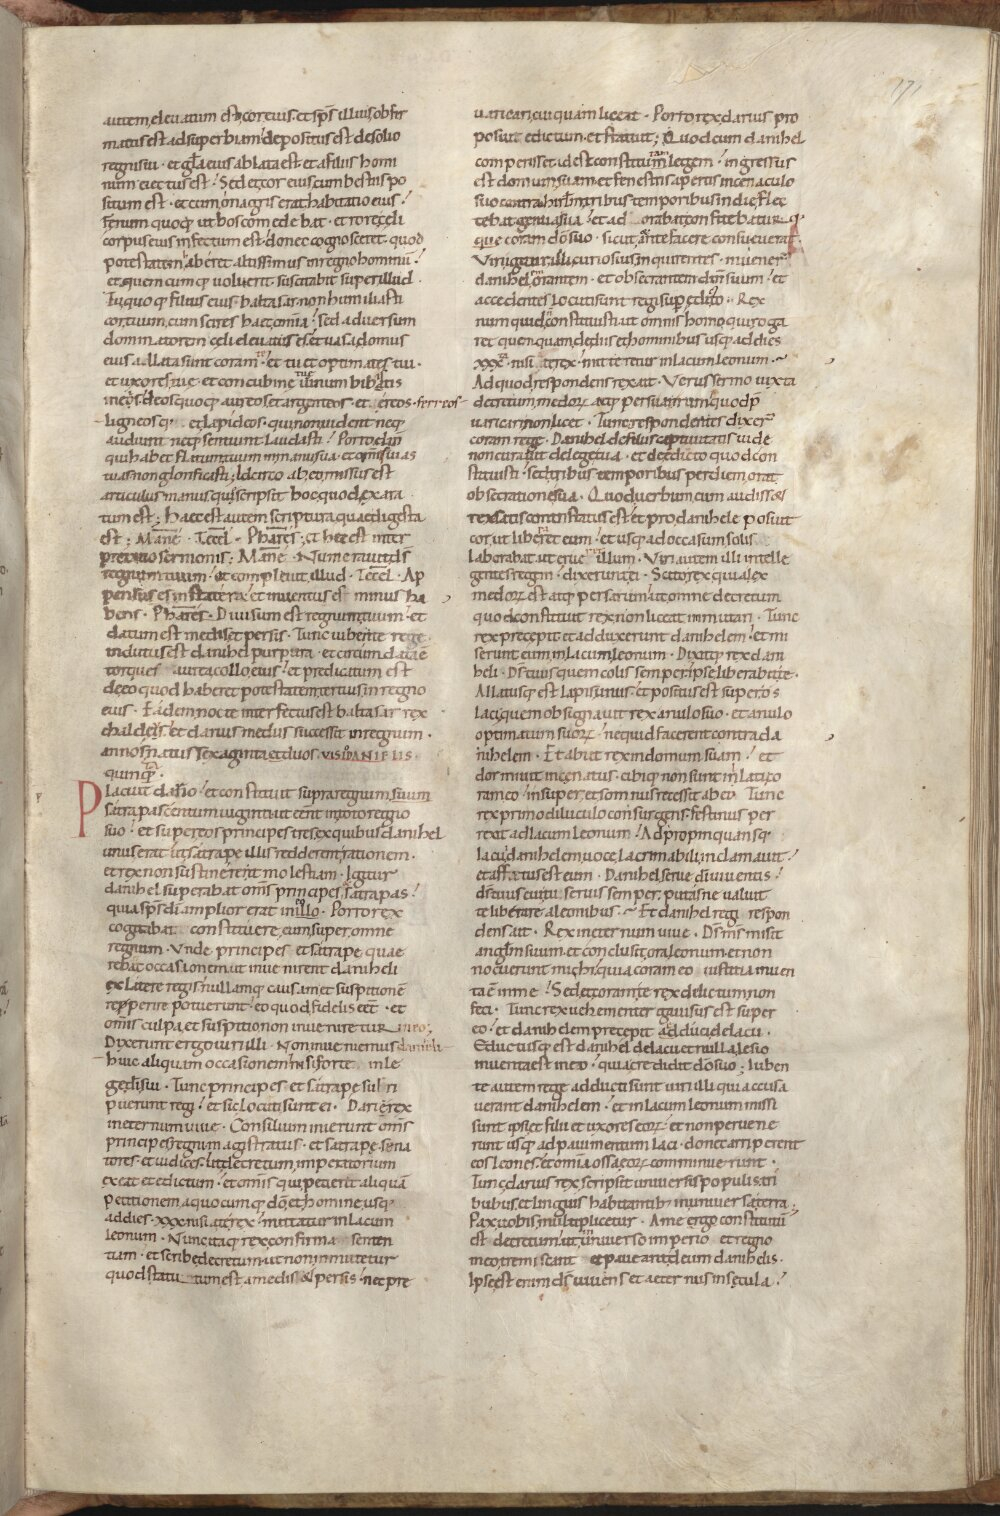 171
autem elevatum est cor eius. et sps illius obfir
matus est ad superbiam. depositus est de solio
regni sui · et gla eius ablata est et a filiis homi
num eiectus est. Sed et cor eius cum bestiis po
situm est · et cum onagris erat habitatio eius.
fenum quoque ut bos comedebat · et rore celi
corpus eius infectum est. donec cognosceret quod
potestatem haberet altissimus in regno hominum.
et quemcumque voluerit suscitabit super illud.
Tu quoque filius eius baltasar non humiliasti
cor tuum. cum scires haec omnia. sed adversum
dominatorem celi elevatus es. et vasa domus
eius allata sunt coram te. et tu et optimates tui ·
et uxores tue · et concubine tue vinum bibistis
in eis. deos quoque aureos et argenteos · et ereos ferreos
ligneosque et lapideos · qui non vident neque
audiunt neque sentiunt laudasti. Porro dm
qui habet flatum tuum in manu sua · et omnes vias
tuas non glorificasti. Idcirco ab eo missus est
articulus manus qui scripsit hoc quod exara
tum est; Haec est autem scriptura quae digesta
est; Mane · Techel · Phares; et hec est inter
pretatio sermonis; Mane · Numeravit ds
regnum tuum. et complevit illud · Techel · Ap
pensus es in statera · et inventus es minus ha
bens · Phares · Divisum est regnum tuum · et
datum est medis et persis · Tunc iubente rege
indutus est danihel purpura · et circumdata e
torques aurea collo eius. et predicatum est
de eo quod haberet potestatem tertius in regno
eius · Eadem nocte interfectus est baltasar rex
chaldeus. et darius medus successit in regnum ·
annos natus sexaginta et duos · VISIO DANIELIS
quinta ·
Placuit dario. et constituit supra regnum suum
satrapas centum viginti ut essent in toto regno
suo. et super eos principes tres ex quibus danihel
unus erat. ut satrape illis redderent rationem ·
et rex non sustineret molestiam · Igitur
danihel superabat omnes principes et satrapas.
quia sps di amplior erat in illo · Porro rex
cogitabat constituere eum super omne
regnum · Unde principes et satrape quae
rebant occasionem ut invenirent daniheli
ex latere regis. nullamque causam et suspitione
repperire potuerunt. eo quod fidelis esset · et
omnis culpa et suspitio non inveniretur in eo;
Dixerunt ergo viri illi · Non inveniemus danieli
huic aliquam occasionem nisi forte in le
ge di sui · Tunc principes et satrape surri
puerunt regi. et sic locuti sunt ei · Dari rex
in eternum vive · Consilium inierunt omnes
principes regni magistratus · et satrape sena
tores · et iudices. ut decretum imperatorium
exeat et edictum. et omnis qui petierit aliqua
petitionem a quocumque deo et homine usque
ad dies · xxx · nisi a te rex. mittatur in lacum
leonum · Nunc itaque rex confirma senten
tiam · et scribe decretum ut non inmutetur
quod statutum est a medis et persis. nec pre
varicari cuiquam liceat · Porro rex darius pro
posuit edictum et statuit; Quod cum danihel
comperisset. id est constitutam legem. ingressus
est domum suam. et fenestris apertis in cenaculo
suo contra hierlm tribus temporibus in die flec
tebat genua sua. et adorabat confitebatur
que coram deo suo · sicut ante facere consueverat ·
Viri igitur illi curiosius inquirentes · invener
danihel orantem · et obsecrantem dm suum · et
accedentes locuti sunt regi super edicto · Rex
numquid constituisti ut omnis homo qui roga
ret quemquam de diis et hominibus usque ad dies
xxx · nisi a te rex · mitteretur in lacum leonum ·
Ad quod respondens rex ait · Verus sermo iuxta
decretum medorum atque persarum quod p
varicari non licet · Tunc respondentes dixer
coram rege · Danihel de filiis captivitatis iude
non curavit de lege tua · et de edicto quod con
stituisti · sed tribus temporibus per diem orat
obsecratione sua · Quod verbum cum audisset
rex satis contristatus est et pro danihele posuit
cor ut liberaret eum · et usque ad occasum solis
laborabat ut erueret illum · Viri autem illi intelle
gentes regem · dixerunt ei · Scito rex quia lex
medorum est atque persarum ut omne decretum
quod constituit rex non liceat inmutari · Tunc
rex precepit et adduxerunt danihelem. et mi
serunt eum in lacum leonum · Dixitque rex dani
heli · Ds tuus quem colis semper ipse liberabit te ·
Allatusque est lapis unus. et positus est super os
laci. quem obsignavit rex anulo suo · et anulo
optimatum suorum. nequid facerent contra da
nihelem · Et abiit rex in domum suam. et
dormivit incenatus · cibique non sunt inlati co
ram eo. insuper et somnus recessit ab eo · Tunc
rex primo diluculo consurgens. festinus per
rexit ad lacum leonum. Adpropinquansque
lacui danihelem voce lacrimabili inclamavit.
et affatus est eum · Danihel serve di viventis.
ds tuus cui tu servis semper. putasne valuit
te liberare a leonibus · Et danihel regi respon
dens ait · Rex in eternum vive · Ds ms misit
anglm suum. et conclusit ora leonum et non
nocuerunt michi. quia coram eo iustitia inven
ta e in me. Sed et coram te rex delictum non
feci · Tunc rex vehementer gavisus est super
eo. et danihelem precepit adduci de lacu ·
Eductusque est danihel de lacu et nulla lesio
inventa est in eo · quia credidit deo suo; Iuben
te autem rege adducti sunt viri illi qui accusa
verant danihelem. et in lacum leonum missi
sunt ipsi et filii et uxores eorum. et non pervene
runt usque ad pavimentum laci · donec arriperent
eos leones. et omnia ossa eorum comminuerunt ·
Tunc darius rex scripsit universis populis tri
bubus et linguis habitantibus in universa terra;
Pax vobis multiplicetur · A me ergo constitutum
est decretum. ut in universo imperio et regno
meo tremiscant et paveant deum danihelis ·
Ipse est enim ds vivens et aeternus in secula.